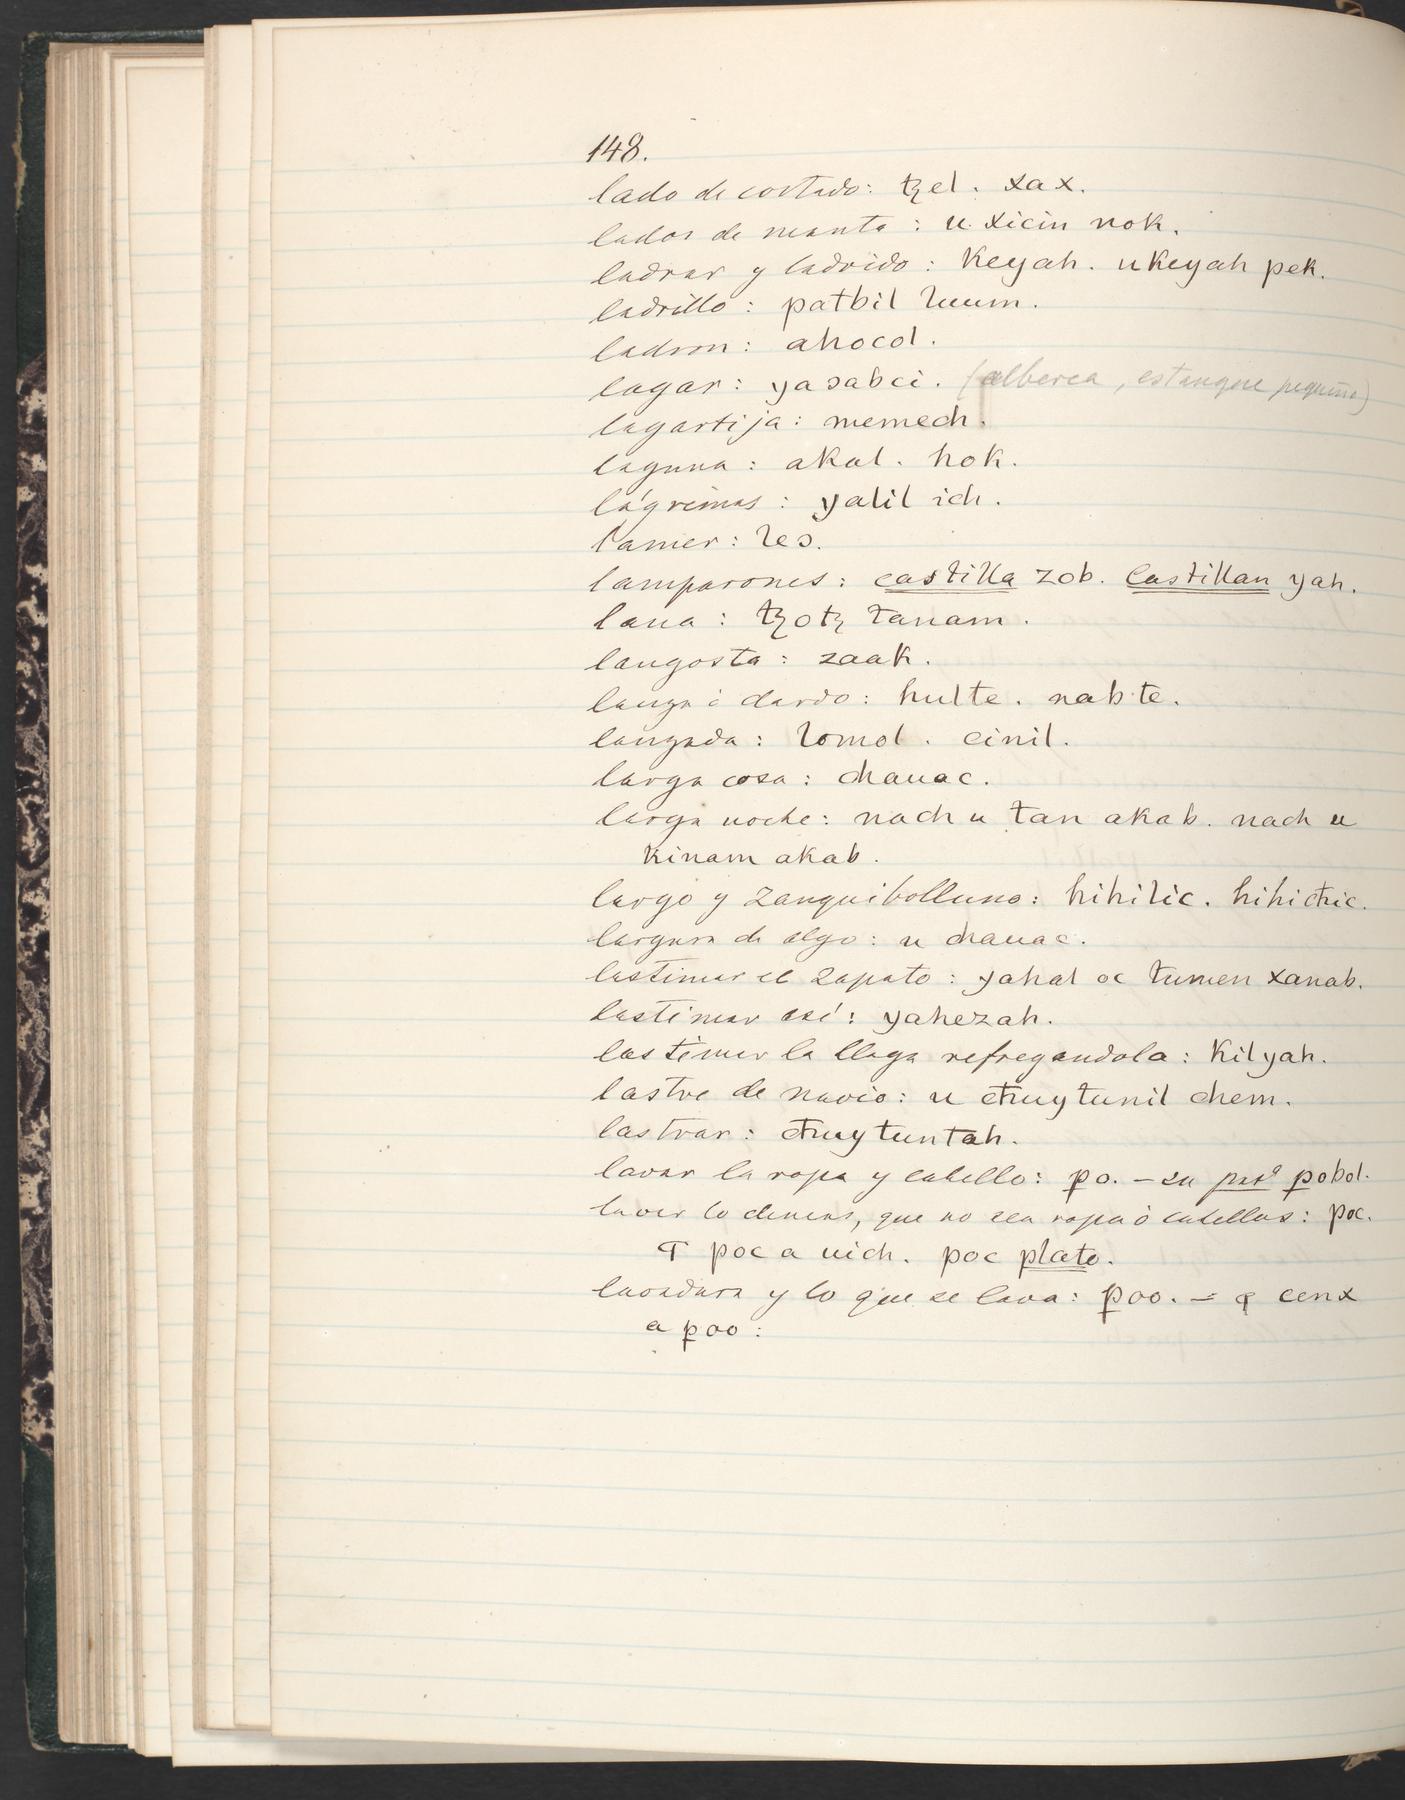 148.
lado de costado: tzel. xax.
lados de manta: u xicin nok.
ladrar y ladrido: keyah. u keyah pek.
ladrillo: patbil luum.
ladron: ahocol.
lagar: yaɔabci. (alberca, estanque pequeño)
lagartija: memech.
laguna: akal. hok.
lágrimas: yalil ich.
lamer: leɔ.
lamparones: castilla zob. Castillan yah.
lana: tzotz tanam.
langosta: zaak.
lanza ó dardo: hulte. nabte.
lanzada: lomol. cinil.
larga cosa: chauac.
larga noche: nach u tan akab. nach u
kinam akab.
largo y zanquibolluno: hihilic. hihicħic.
largura de algo: u chauac.
lastimar el zapato: yahal oc tumen xanab.
lastimar así: yahezah.
lastimar la llaga refregandola: kilyah.
lastre de navio: u cħuytunil chem.
lastrar: cħuytuntah.
lavar la ropa y cabello: ꝑo. – su pasº ꝑobol.
lavar lo demas, que no sea ropa ó cabellos: poc.
¶ poc a uich. poc plato.
lavadura y lo que se lava: ꝑoo. = ¶ cenx
a ꝑoo: